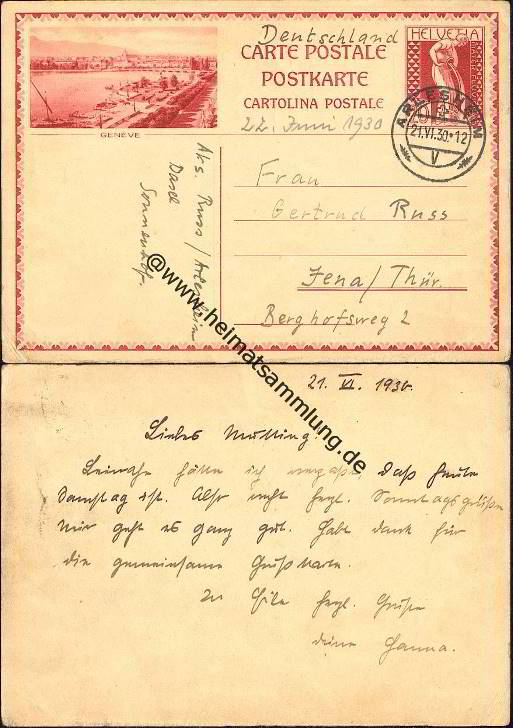 Deutschland
CARTE POSTALE
POSTKARTE
CARTOLINA POSTALE
22. Juni 1930
GENÈVE
HELVETIA
ARLESHEIM
21.VI.30.-12
V
Abs. Russ / Arlesheim
Basel
Sonnenhof.
Frau
Gertrud Russ
Jena / Thür.
Berghofsweg 2
@www.heimatsammlung.de
21. VI. 1930.
Liebes Mutting!
Beinahe hätte ich vergaß, daß heute
Samstag ist. Also recht herzl. Sonntagsgrüße
Mir geht es ganz gut. Habt Dank für
die gemeinsame Grußkarte.
In Eile herzl. Grüße
deine Hanna.